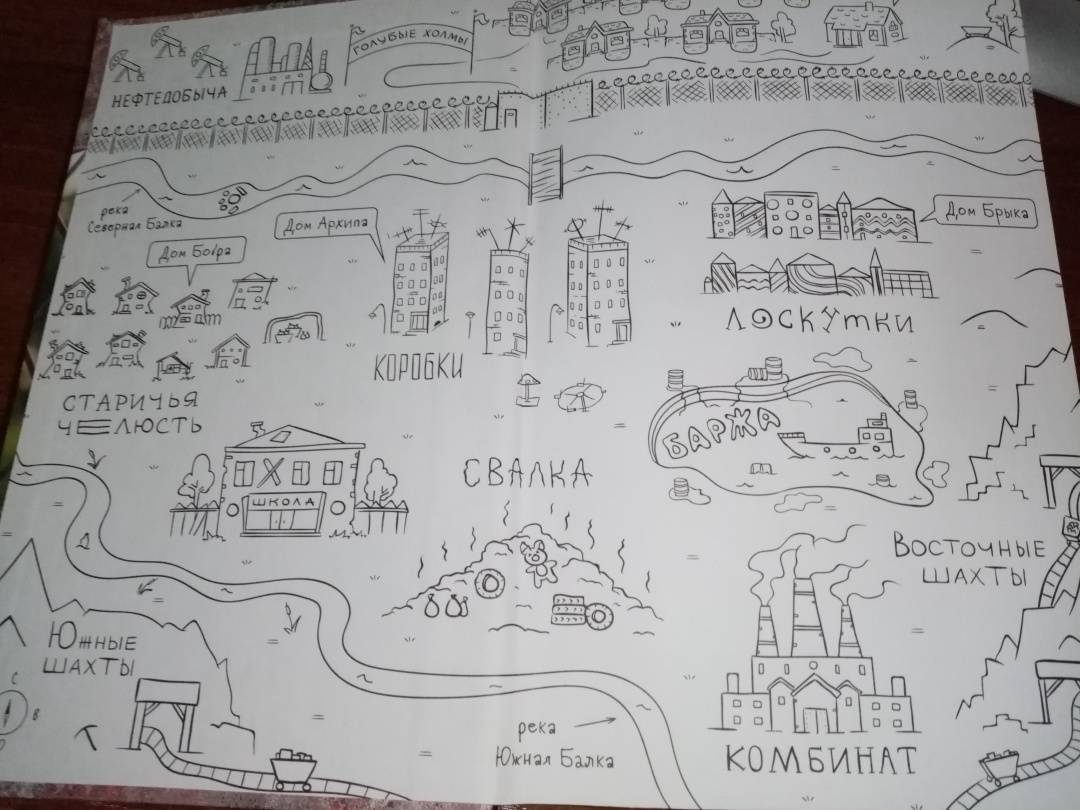 ГОЛУБЫЕ ХОЛМЫ
НЕФТЕДОБЫЧА
река
Северная Балка
Дом Архипа
Дом Брыка
Дом Бобра
ЛОСКУТКИ
КОРОБКИ
СТАРИЧЬЯ
ЧЕЛЮСТЬ
БАРЖА
СВАЛКА
ШКОЛА
ВОСТОЧНЫЕ
ШАХТЫ
ЮЖНЫЕ
ШАХТЫ
С
В
река
Южная Балка
КОМБИНАТ